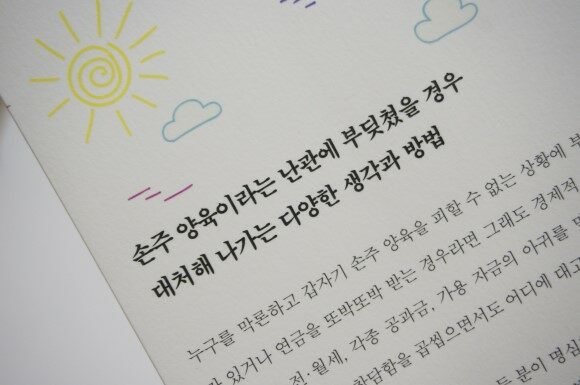 손주 양육이라는 난관에 부딪쳤을 경우
대처해 나가는 다양한 생각과 방법
누구를 막론하고 갑자기 손주 양육을 피할 수 없는 상황에
있거나 연금을 또박또박 받는 경우라면 그래도 경제적
전·월세, 각종 공과금, 가용 자금의 아귀를
곱씹으면서도 어디에 대고
분이 명심